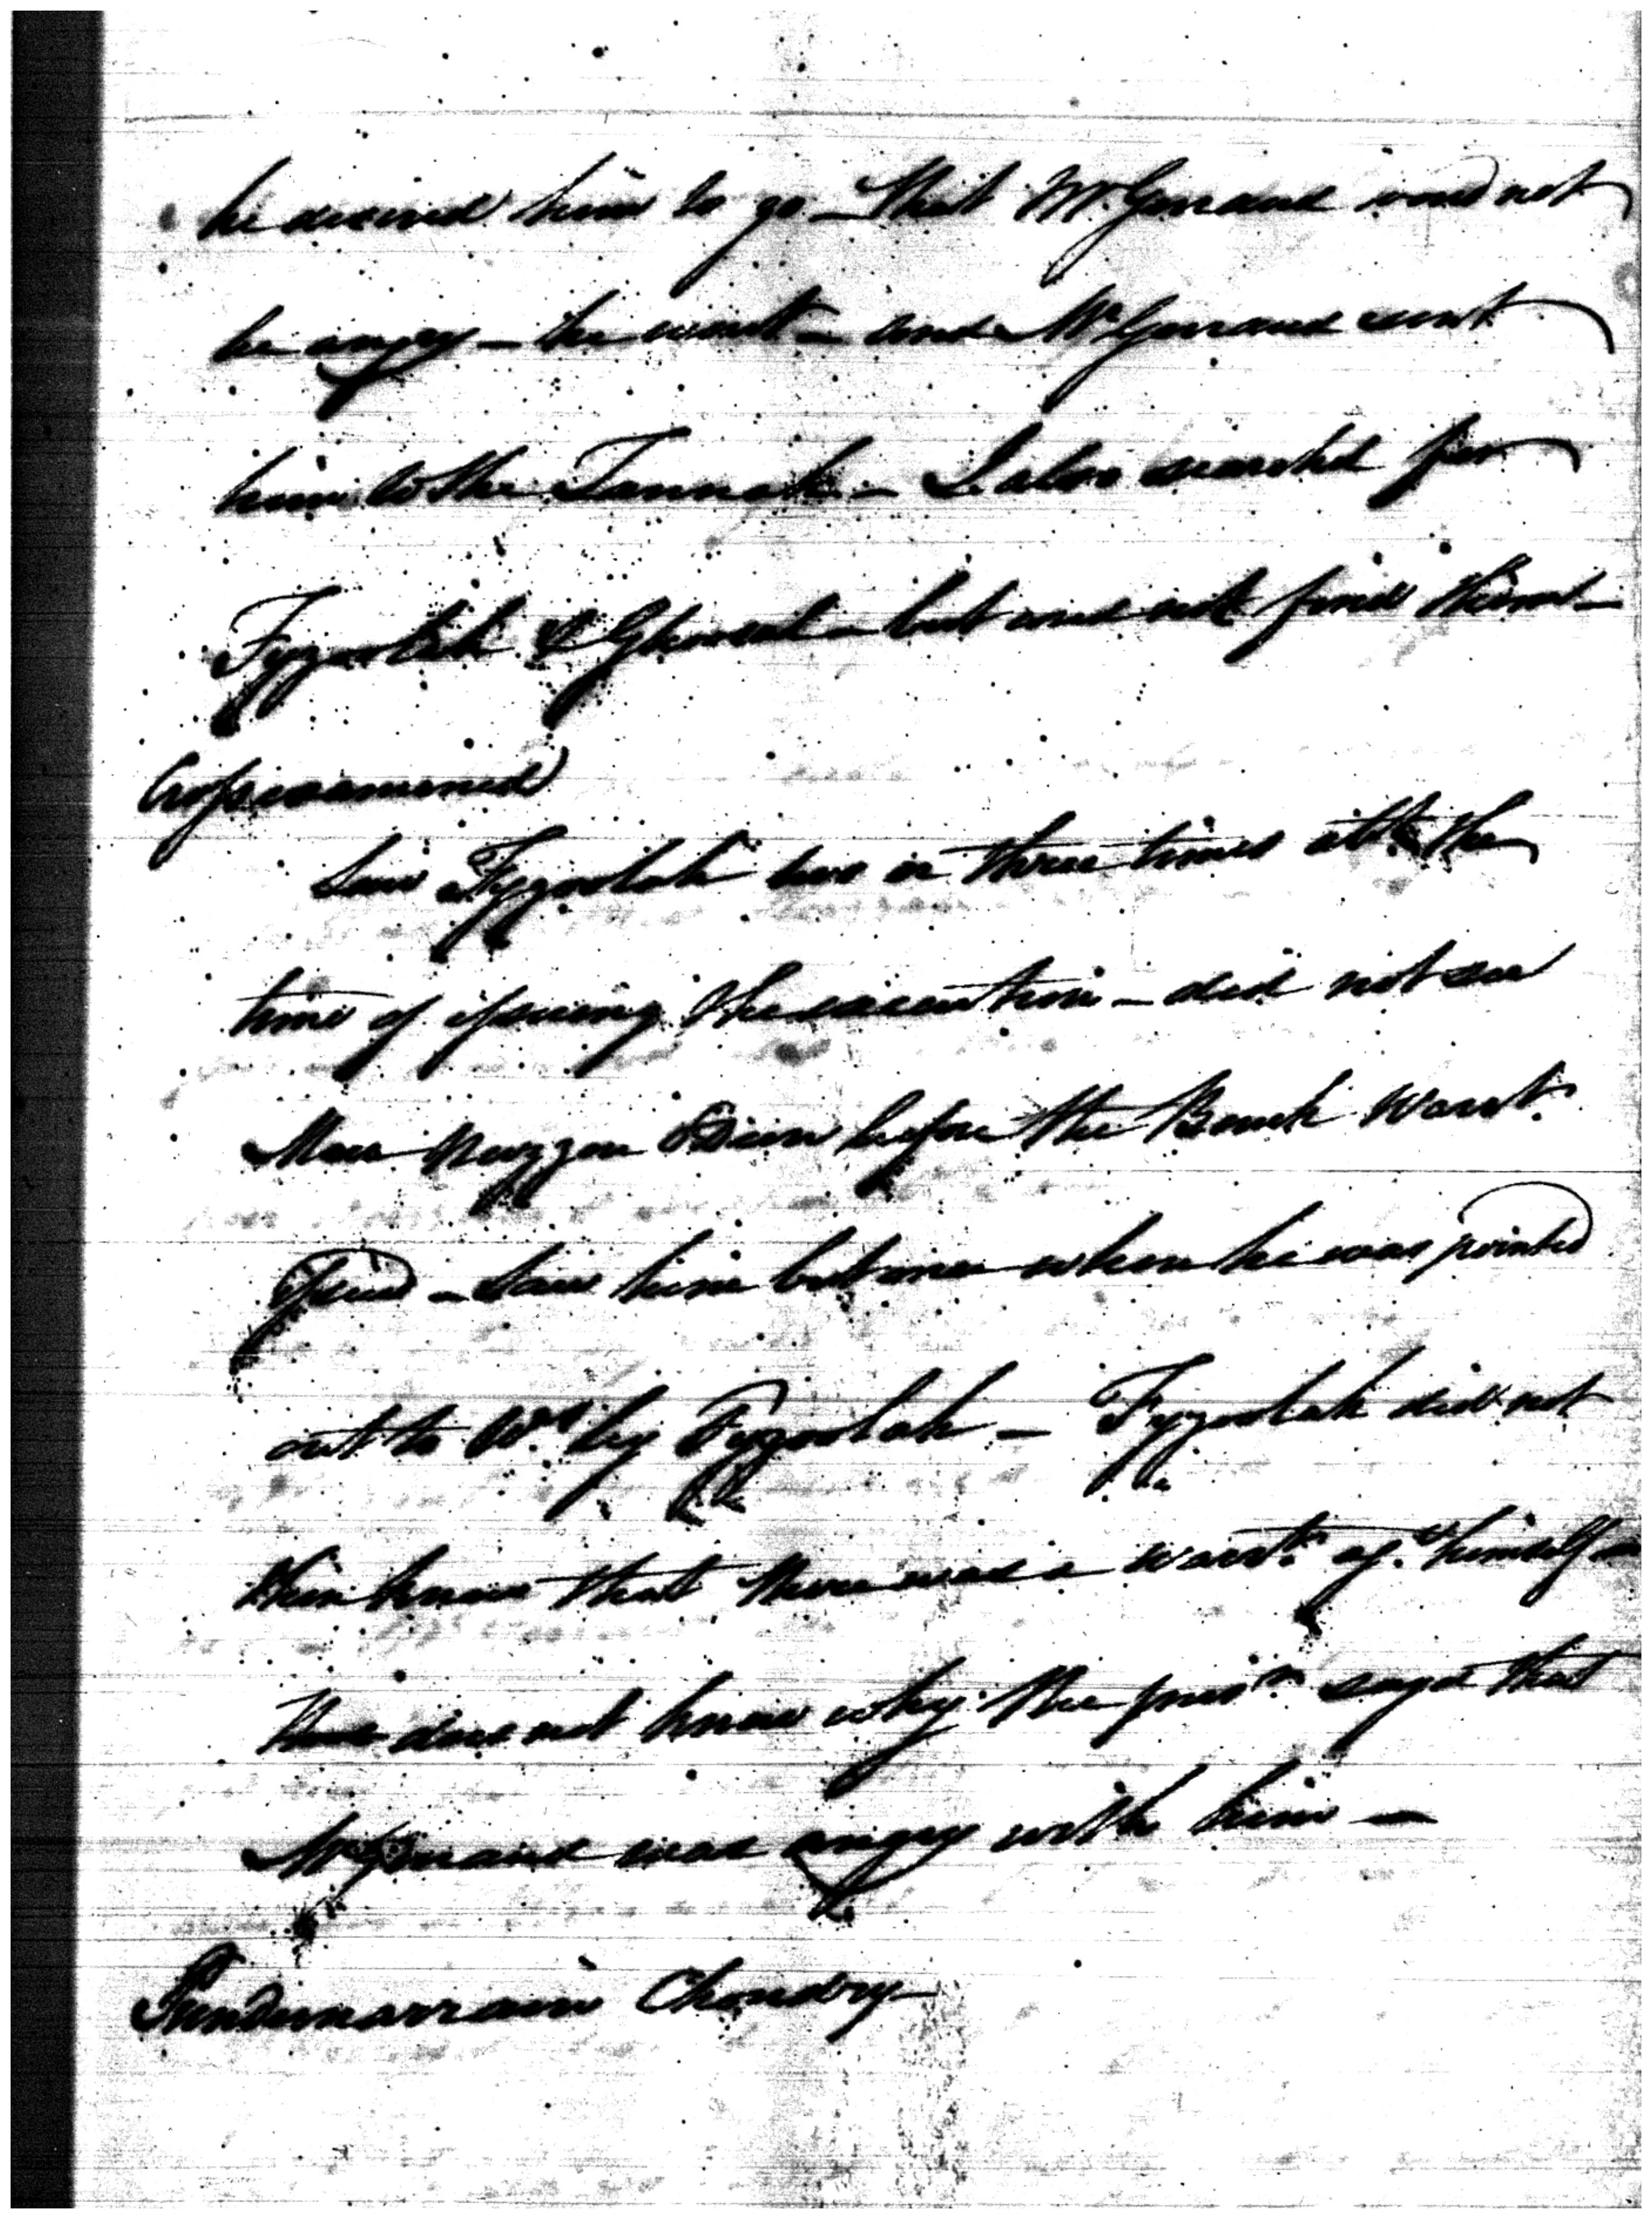 he desired him to go – That Mr. Gerrard woud not
be angry – he went – and Mr Gerrard sent
him to the Tannah – I also searched for
Fyzoolah & – but coud not find them –
Crossexamined
Saw Fyzoolah two or three times at the
time of issuing the execution – did not see
Meer Nuzzen before the Bench Warrt.
issued – Saw him but once when he was pointed
out to Ws. by Fyzoolah – Fyzoolah did not
then know that there was a warrt. agt. himself
does not know why the prisr. says that
Mr Gerrard was angry with him –
Chowdry